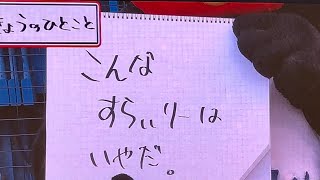 きょうのひとこと
こんな
すらぃりーは
いやだ。